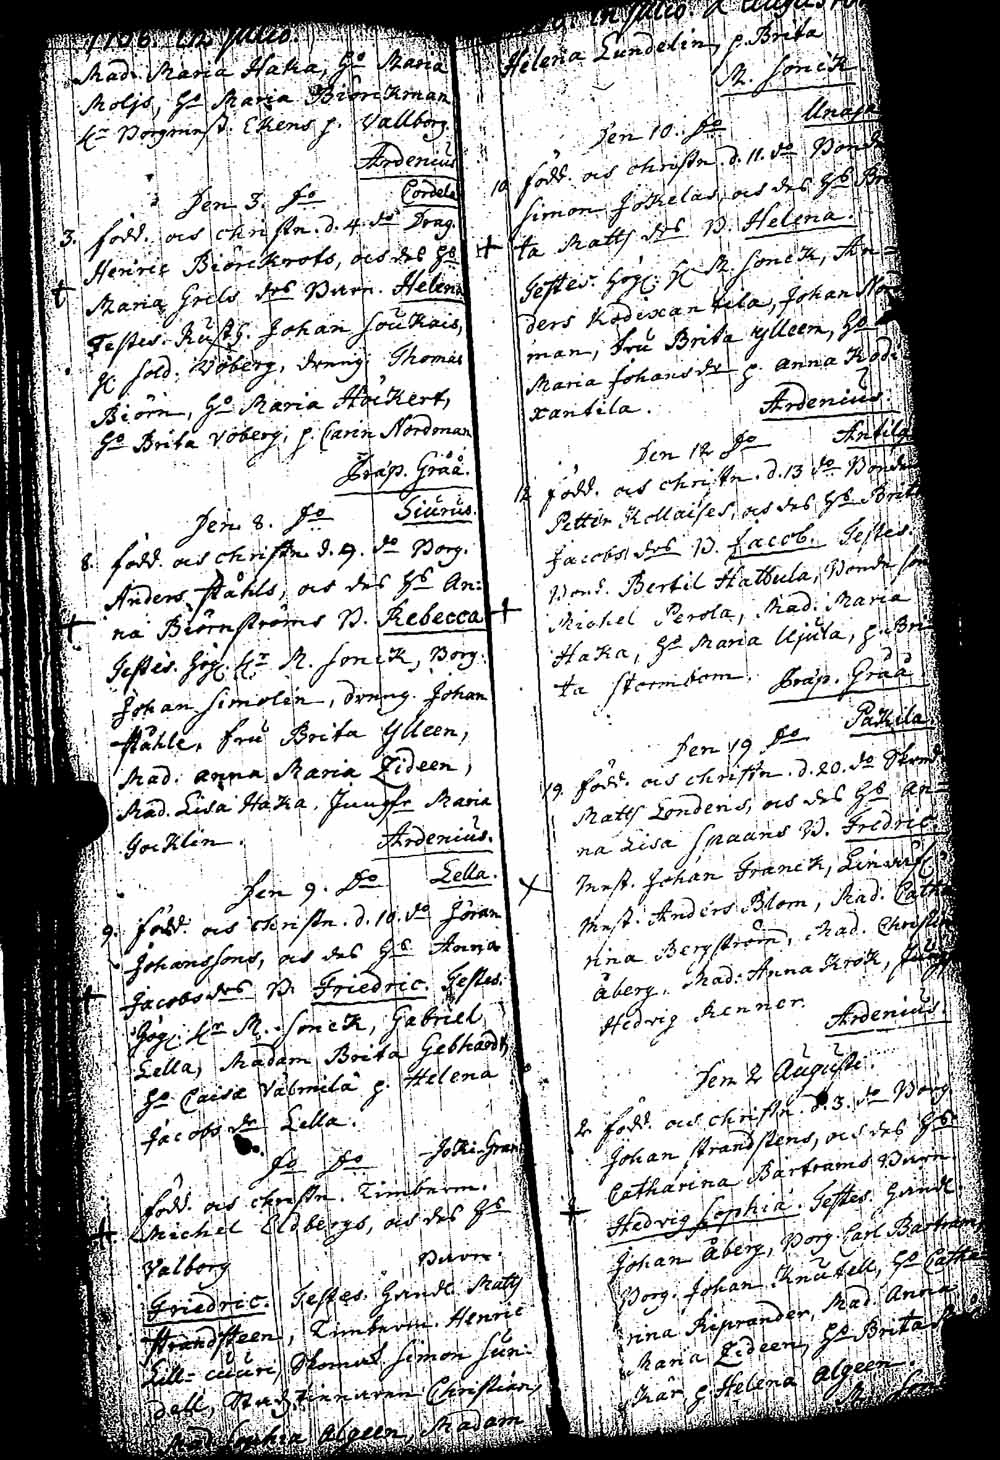 in Julio.
Mad. Maria Haka, Ho Maria
Moljs, Ho Maria Biörckman
Ekens p. Vallborg.
Ardenius
Den 3. do
3. född. och christn. d. 4. do Drag.
Henric Biörckrots, och des Ho
Maria Grels des Barn. Helena
Testes. Johan Soukais,
sold. Woberg, dreng Thomas
Biörn, Ho Maria Höckert,
Ho Brita Woberg, p. Carin Nordman
Præp. Gråå.
Den 8. do Siurus.
8. född. och christn d. 9. do Borg.
Anders Ståhls, och des Hb An-
na Biörnströms B. Rebecca
Testes. M. Sonck, Borg.
Johan Simolin, dreng. Johan
Ståhle, fru Brita Ylleen,
Mad. Anna Maria Zideen,
Mad. Lisa Haka, Jungfr Maria
Gocklin. Ardenius.
Den 9. do Lella.
9. född. och christn. d. 10. do Jöran
Johanssons, och des Hb Anna
Jacobsdes B. Friedric. Testes.
M. Sonck, Gabriel
Lella, Madam Brita Gebhardt,
Ho Caisa p. Helena
Jacobsdr Lella.
do do
född. och christn. Timberm.
Michel Eldbergs, och des Hb
Valborg Barn.
Friedric. Testes. Matts
Strandsteen, Timberm. Henric
Simon Sun-
dell, Christian,
Mad. Sophia Algeen, Madam
in Julio. & Augusto
Helena Lundelin, p. Brita
M. Sonck.
Den 10. do
10 född. och christn. d. 11. do Bonde
Simon Jokelas, och des Hb Bri
ta Matts des B. Helena.
Testes. M Sonck, An-
ders Kodixantila, Johan Nor
man, fru Brita Ylleen, Ho
Maria Johansdr p. Anna Kodi
xantila. Ardenius.
Den 12 do
12 född. och christn. d. 13 do Bonde
Petter Kollaises, och des Hb Brita
Jacobs des B. Jacob. Testes.
Bond. Bertil Hattula, Bonde son
Michel Perola, Mad. Maria
Haka, Ho Maria Ujula, p. Bri
ta Stormbom. Præp. Gråå
Den 19 do Pakila.
19. född. och christn. d. 20. do
Matts Londens, och des Hb An-
na Lisa Spaans B. Fredric
Mnst. Johan Franck,
Mnst. Anders Blom, Mad. Catha
rina Bergström, Mad. Christin
Åberg, Mad. Anna Krok, Jungf
Hedvig Renner.
Ardenius.
Den 2 Augusti.
2. född. och christn d. 3. do Borg
Johan Strandstens, och des Hb
Catharina Bartrams Barn.
Hedvig Sophia. Testes.
Johan Åberg, Borg. Carl Bartram,
Borg. Johan Knutell, Ho Catha
rina Riprander, Mad. Anna
Maria Zideen, Ho Brita
p Helena Algeen.